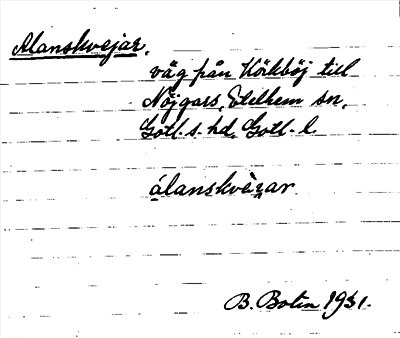 Alanskvejar,
väg från Hörkböj till
Nöjgars, Etelhem sn,
Gotl. s. hd, Gotl. l.
álanskvèꞃar
B. Botin 1931.